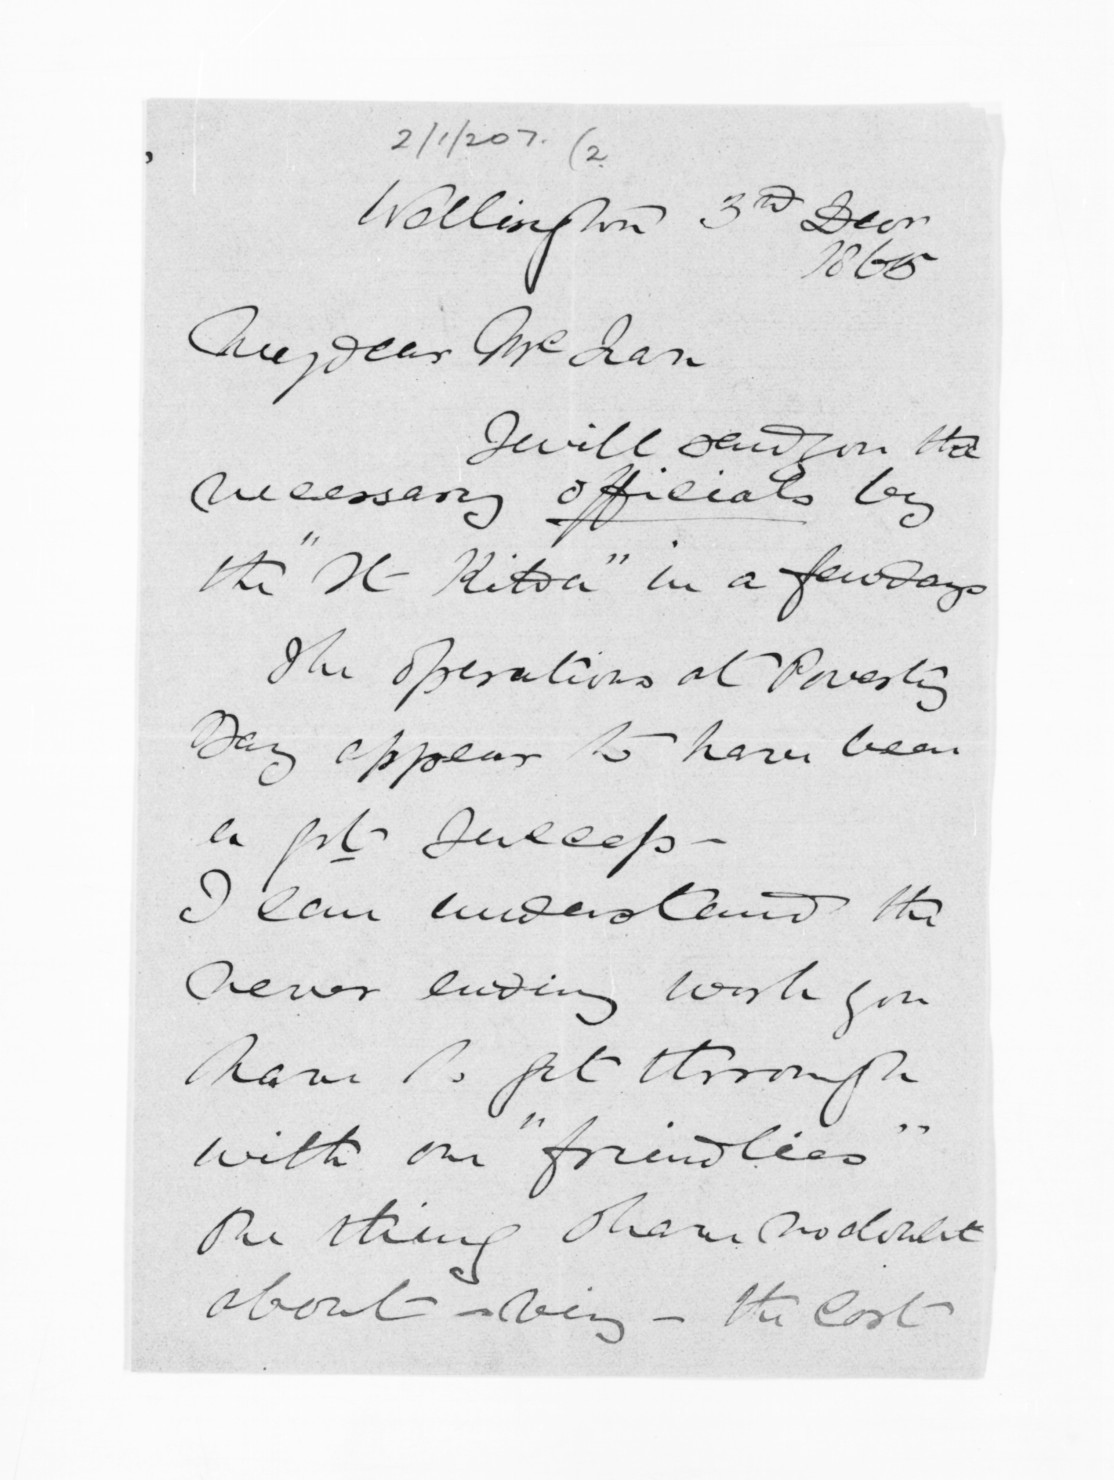 2/1/207. (2.
Wellington 3rd Decr
1865
My dear McLean
I will send you the
necessary officials by
the "St Kilda" in a few days
The operations at Poverty
Bay appear to have been
a grt success -
I can understand the
never ending work you
have to get through
with our "friendlies"
One thing I have no doubt
about - being - the cost